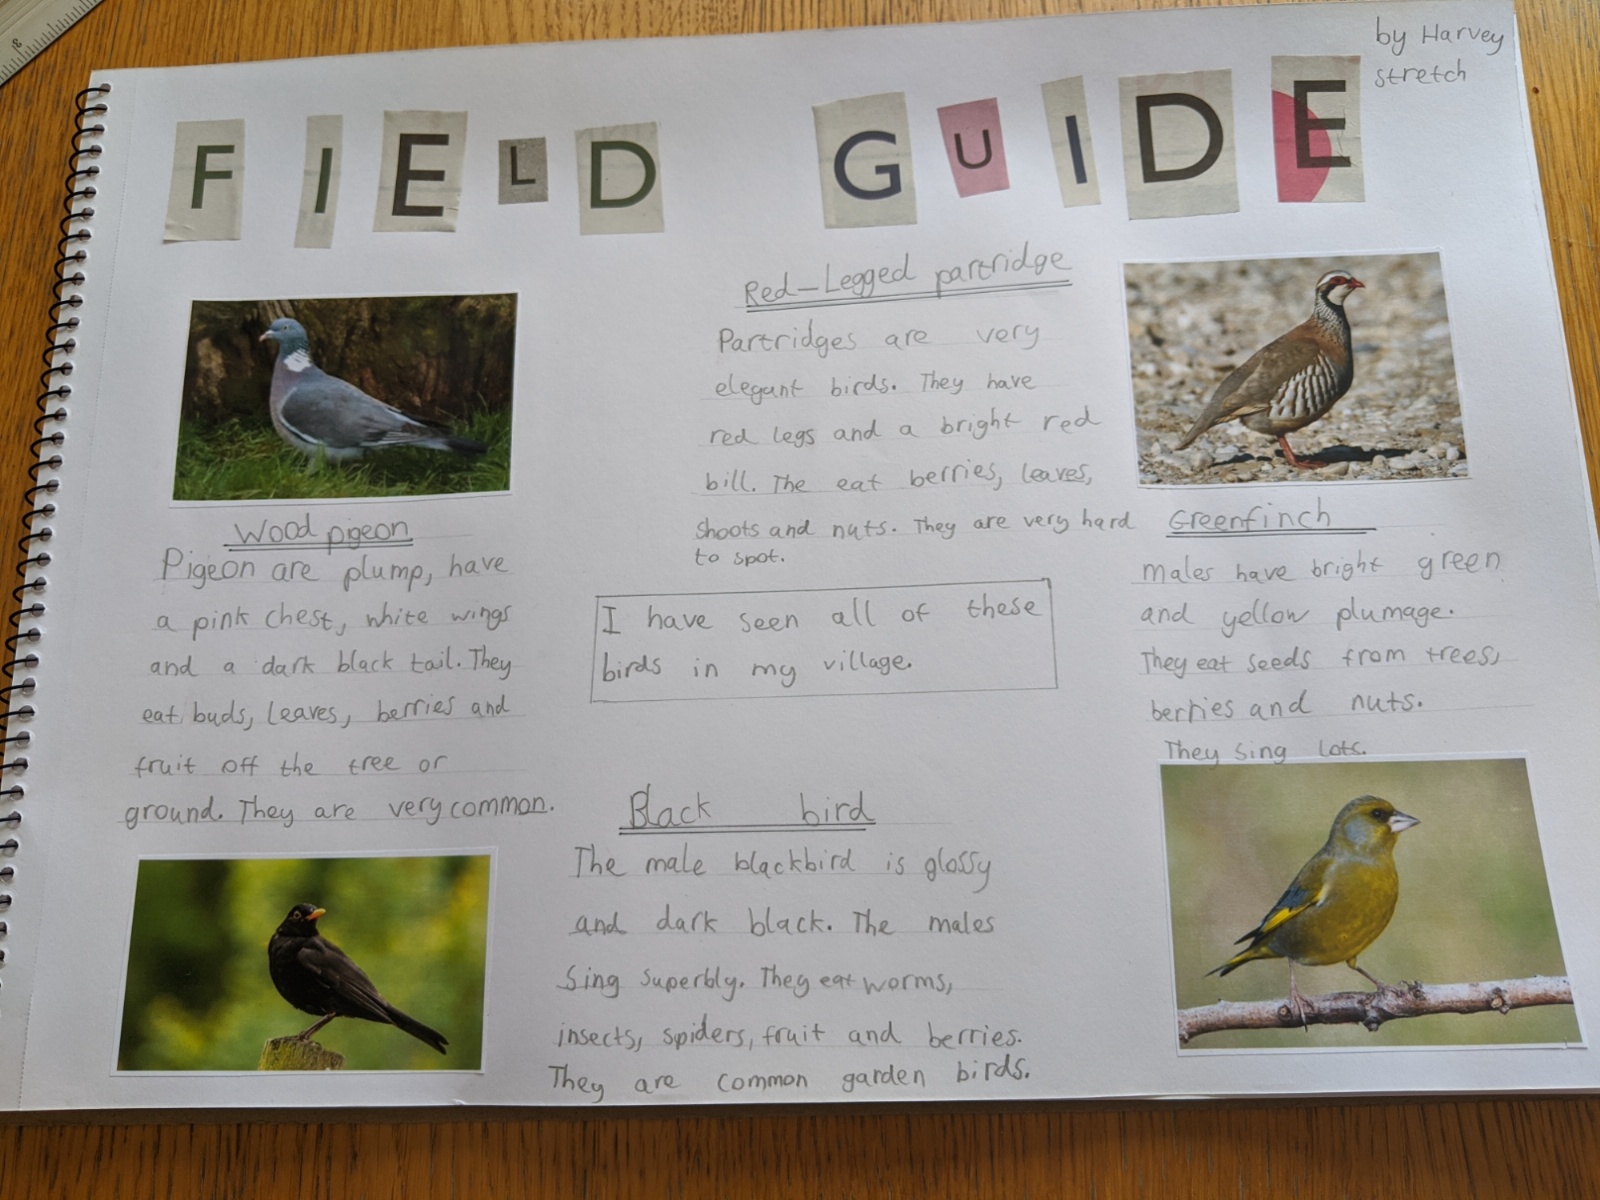 by Harvey
stretch
FIELD GUIDE
Red-Legged partridge
Partridges are very
elegant birds. They have
red legs and a bright red
bill. The eat berries, leaves,
shoots and nuts. They are very hard
to spot.
Wood pigeon
Pigeon are plump, have
a pink chest, white wings
and a dark black tail. They
eat buds, leaves, berries and
fruit off the tree or
ground. They are very common.
I have seen all of these
birds in my village.
Greenfinch
Males have bright green
and yellow plumage.
They eat seeds from trees,
berries and nuts.
They sing lots.
Black bird
The male blackbird is glossy
and dark black. The males
sing superbly. They eat worms,
insects, spiders, fruit and berries.
They are common garden birds.
3